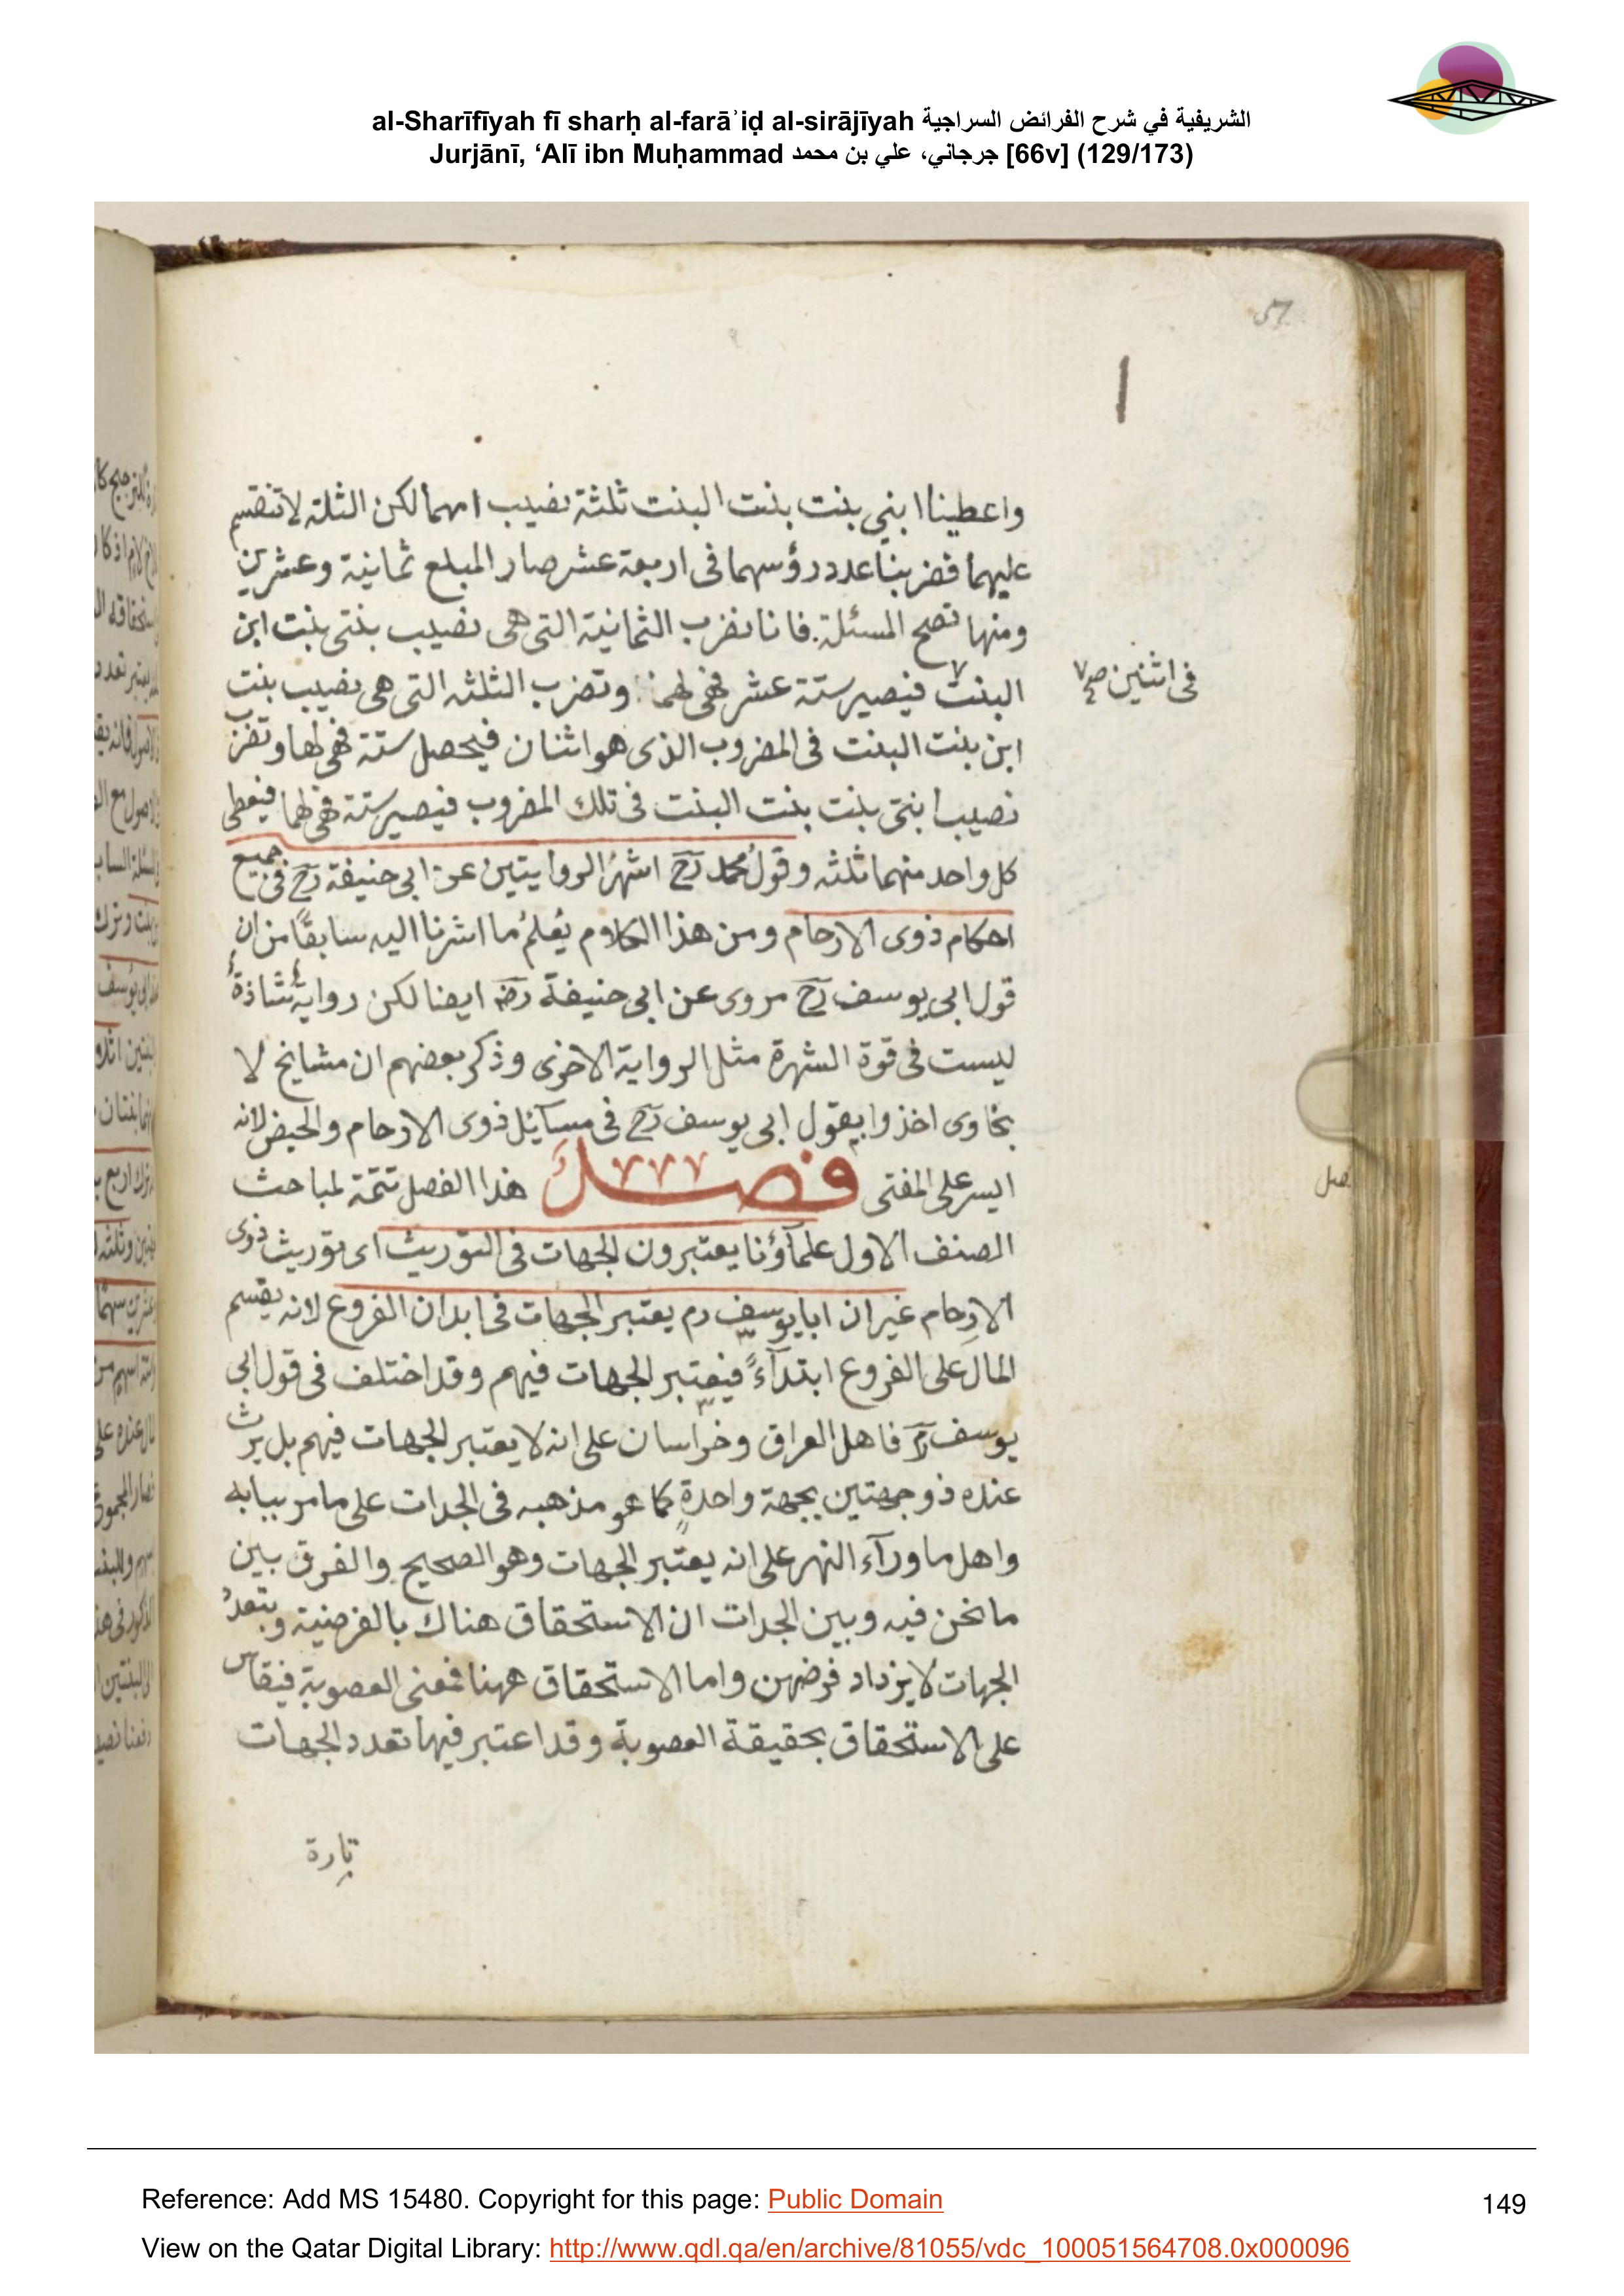 al-Sharīfīyah fī sharḥ al-farāʾiḍ al-sirājīyah الشريفية في شرح الفرائض السراجية
Jurjānī, ‘Alī ibn Muḥammad جرجاني، علي بن محمد [66v] (129/173)
57
واعطينا ابني بنت بنت البنت ثلثة نصيب امهما لكن الثلثه لا تنقسم
عليهما فضربنا عدد رؤسهما فى اربعة عشر صار المبلع ثمانية وعشرين
ومنها تصح المسئلة. فانا نضرب الثمانية التى هى نصيب بنتى بنت ابن
البنت فيصير ستة عشر فهى لهما وتضرب الثلثه التى هى نصيب بنت
فى اثنين صح
ابن بنت البنت فى المضروب الذى هو اثنان فيحصل ستة فهى لها وتضرب
نصيب ابنى بنت بنت البنت فى تلك المضروب فيصير ستة فهى لهما فيعطى
كل واحد منهما ثلثه وقول محمد رح اشهر الروايتين عن ابى حنيفة رح فى جميع
احكام ذوى الارحام ومن هذا الكلام يُعلمُ ما اشرنا اليه سابقًا من ان
قول ابى يوسف رح مروى عن ابى حنيفة رضه ايضا لكن رواية شاذة
ليست فى قوة الشهرة مثل الرواية الاخرى وذكر بعضهم ان مشايخ لا
بخاوى اخذوا بقول ابى يوسف رح فى مسآئل ذوى الارحام والحيض لانه
ايسر على المفتى فصل هذا الفصل تتمة لمباحث
الصنف الاول علمآؤنا يعتبرون الجهات فى التوريث اى توريث ذوى
الارحام غير ان ابا يوسف رم يعتبر الجهات فى ابدان الفروع لانه يقسم
المال على الفروع ابتدآءً فيعتبر الجهات فيهم وقد اختلف فى قول ابى
يوسف رح فاهل العراق وخراسان على انه لا يعتبر الجهات فيهم بل يرث
عنده ذو جهتين بجهة واحدةٍ كما هو مذهبه فى الجدات على ما مر بيابه
واهل ما ورآء النهر على انه يعتبر الجهات وهو الصحيح والفرق بين
ما نحن فيه وبين الجدات ان الاستحقاق هناك بالفرضية وبتعدد
الجهات لا يزداد فرضهن واما الاستحقاق ههنا فمعنى العصوبة فيقاس
على الاستحقاق بحقيقة العصوبة وقد اعتبر فيها تعدد الجهات
تارة
Reference: Add MS 15480. Copyright for this page: Public Domain
149
View on the Qatar Digital Library: http://www.qdl.qa/en/archive/81055/vdc_100051564708.0x000096